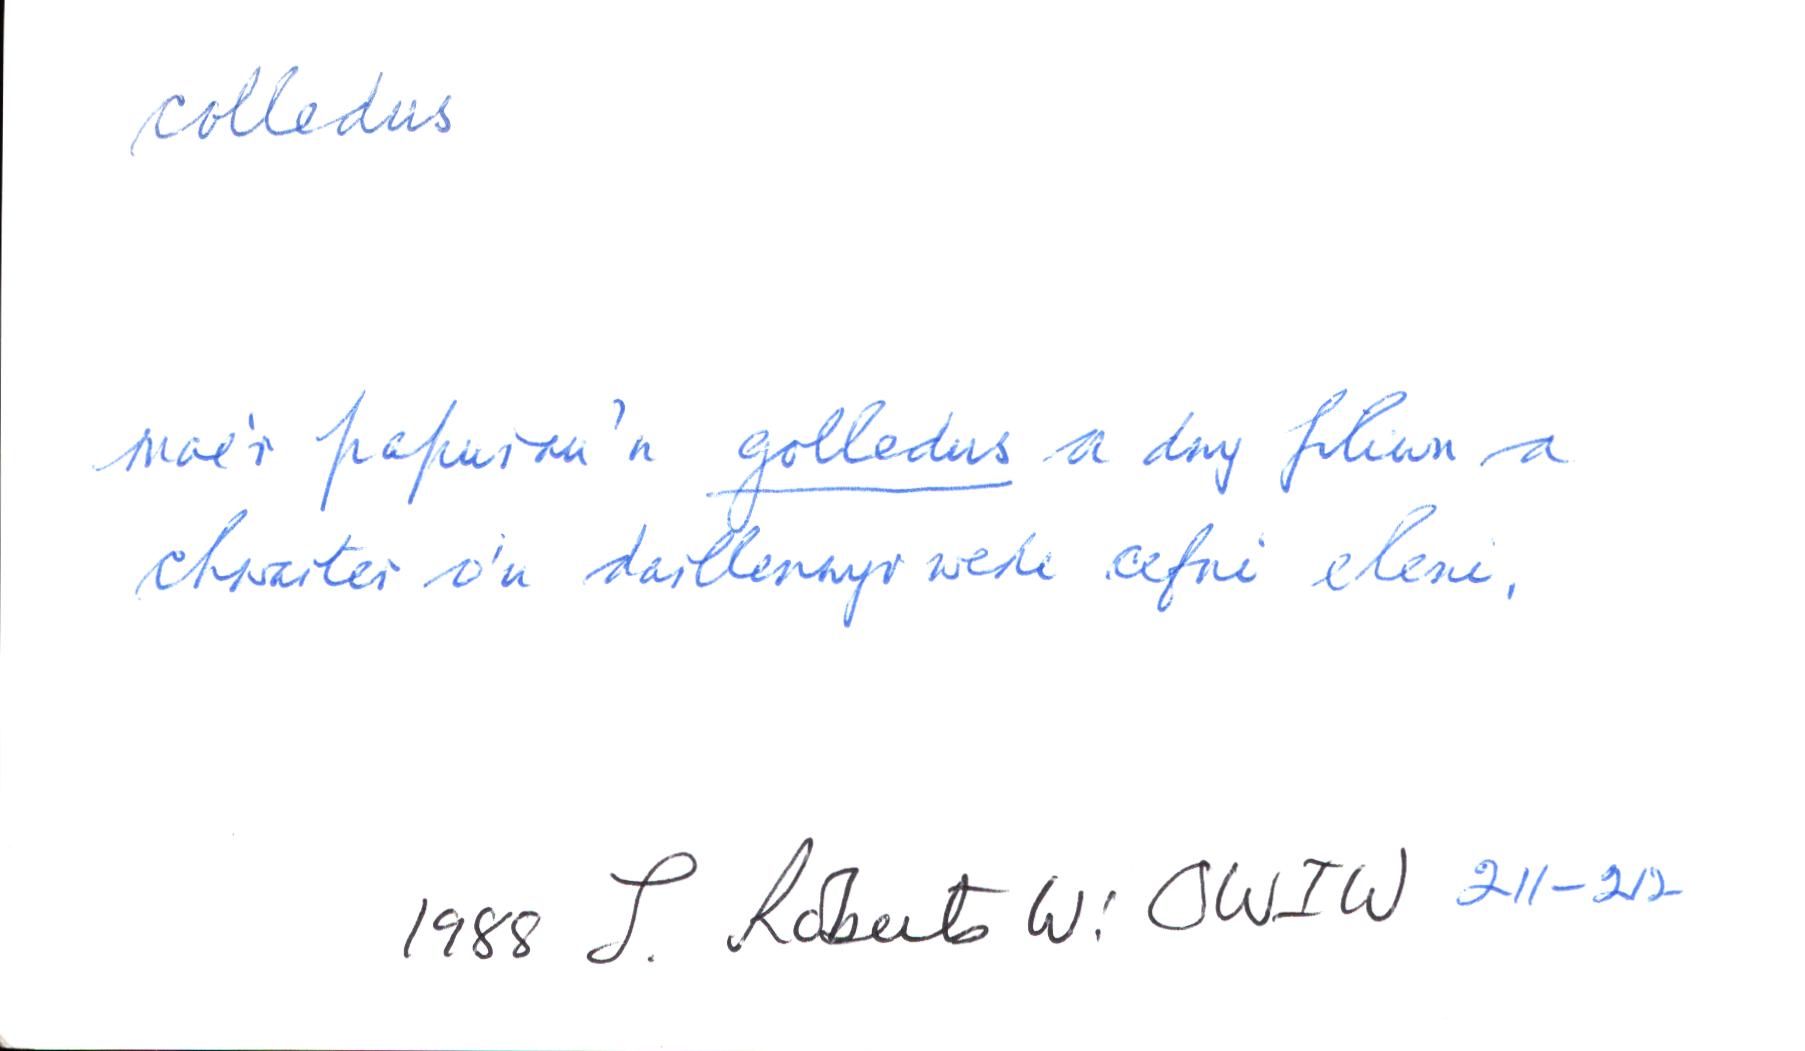 colledus
mae'r papurau'n golledus a dny filiwn a
chwarter o'u darllenwyr wedi cefni eleni.
1988 L. Roberts W: OWIW 211-212